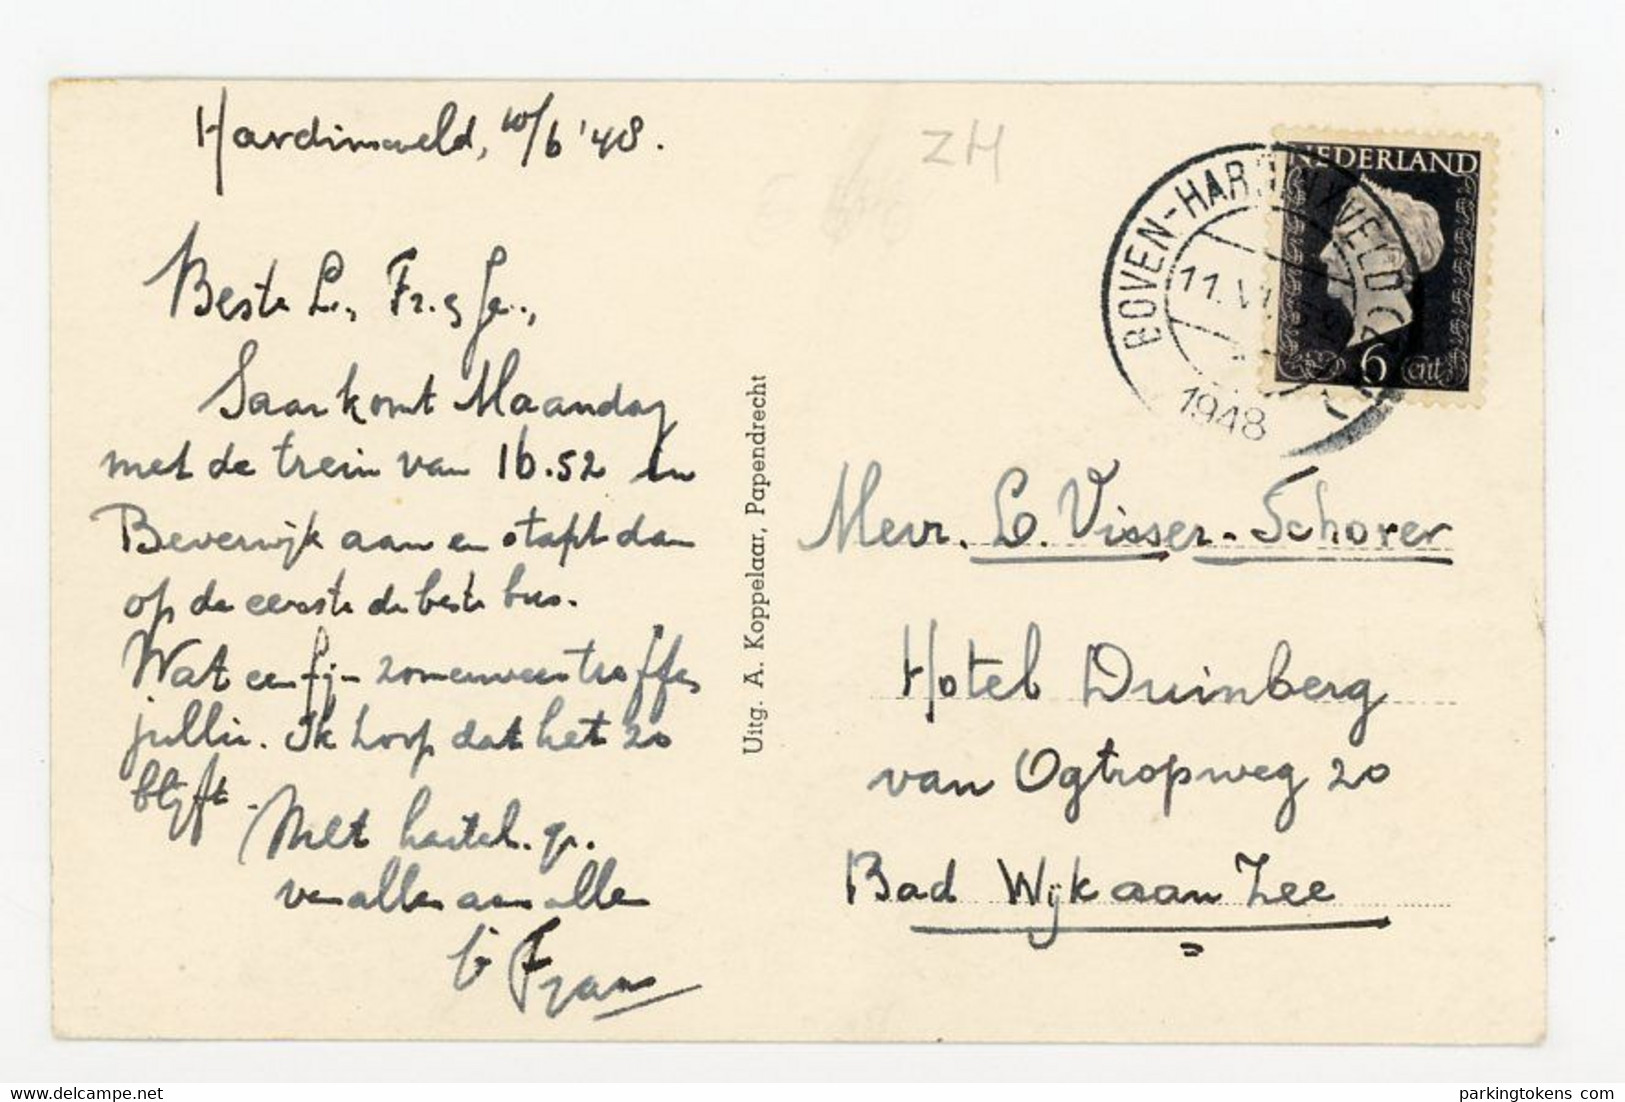 Hardinxveld, 10/6 '48.
Beste L., Fr. & Je.,
Saar komt Maandag
met de trein van 16.52 in
Beverwijk aan en stapt dan
op de eerste de beste bus.
Wat een fijn zomerweer treffen
jullie. Ik hoop dat het zo
blijft.
Met hartel. gr.
van allen aan allen
Frans
Uitg. A. Koppelaar, Papendrecht
ZH
NEDERLAND
6 cent
BOVEN-HARDINXVELD
11.VI
1948
Mevr. L. Visser-Schorer
Hotel Duinberg
van Ogtropweg 20
Bad Wijk aan Zee
delcampe.net
parkingtokens.com